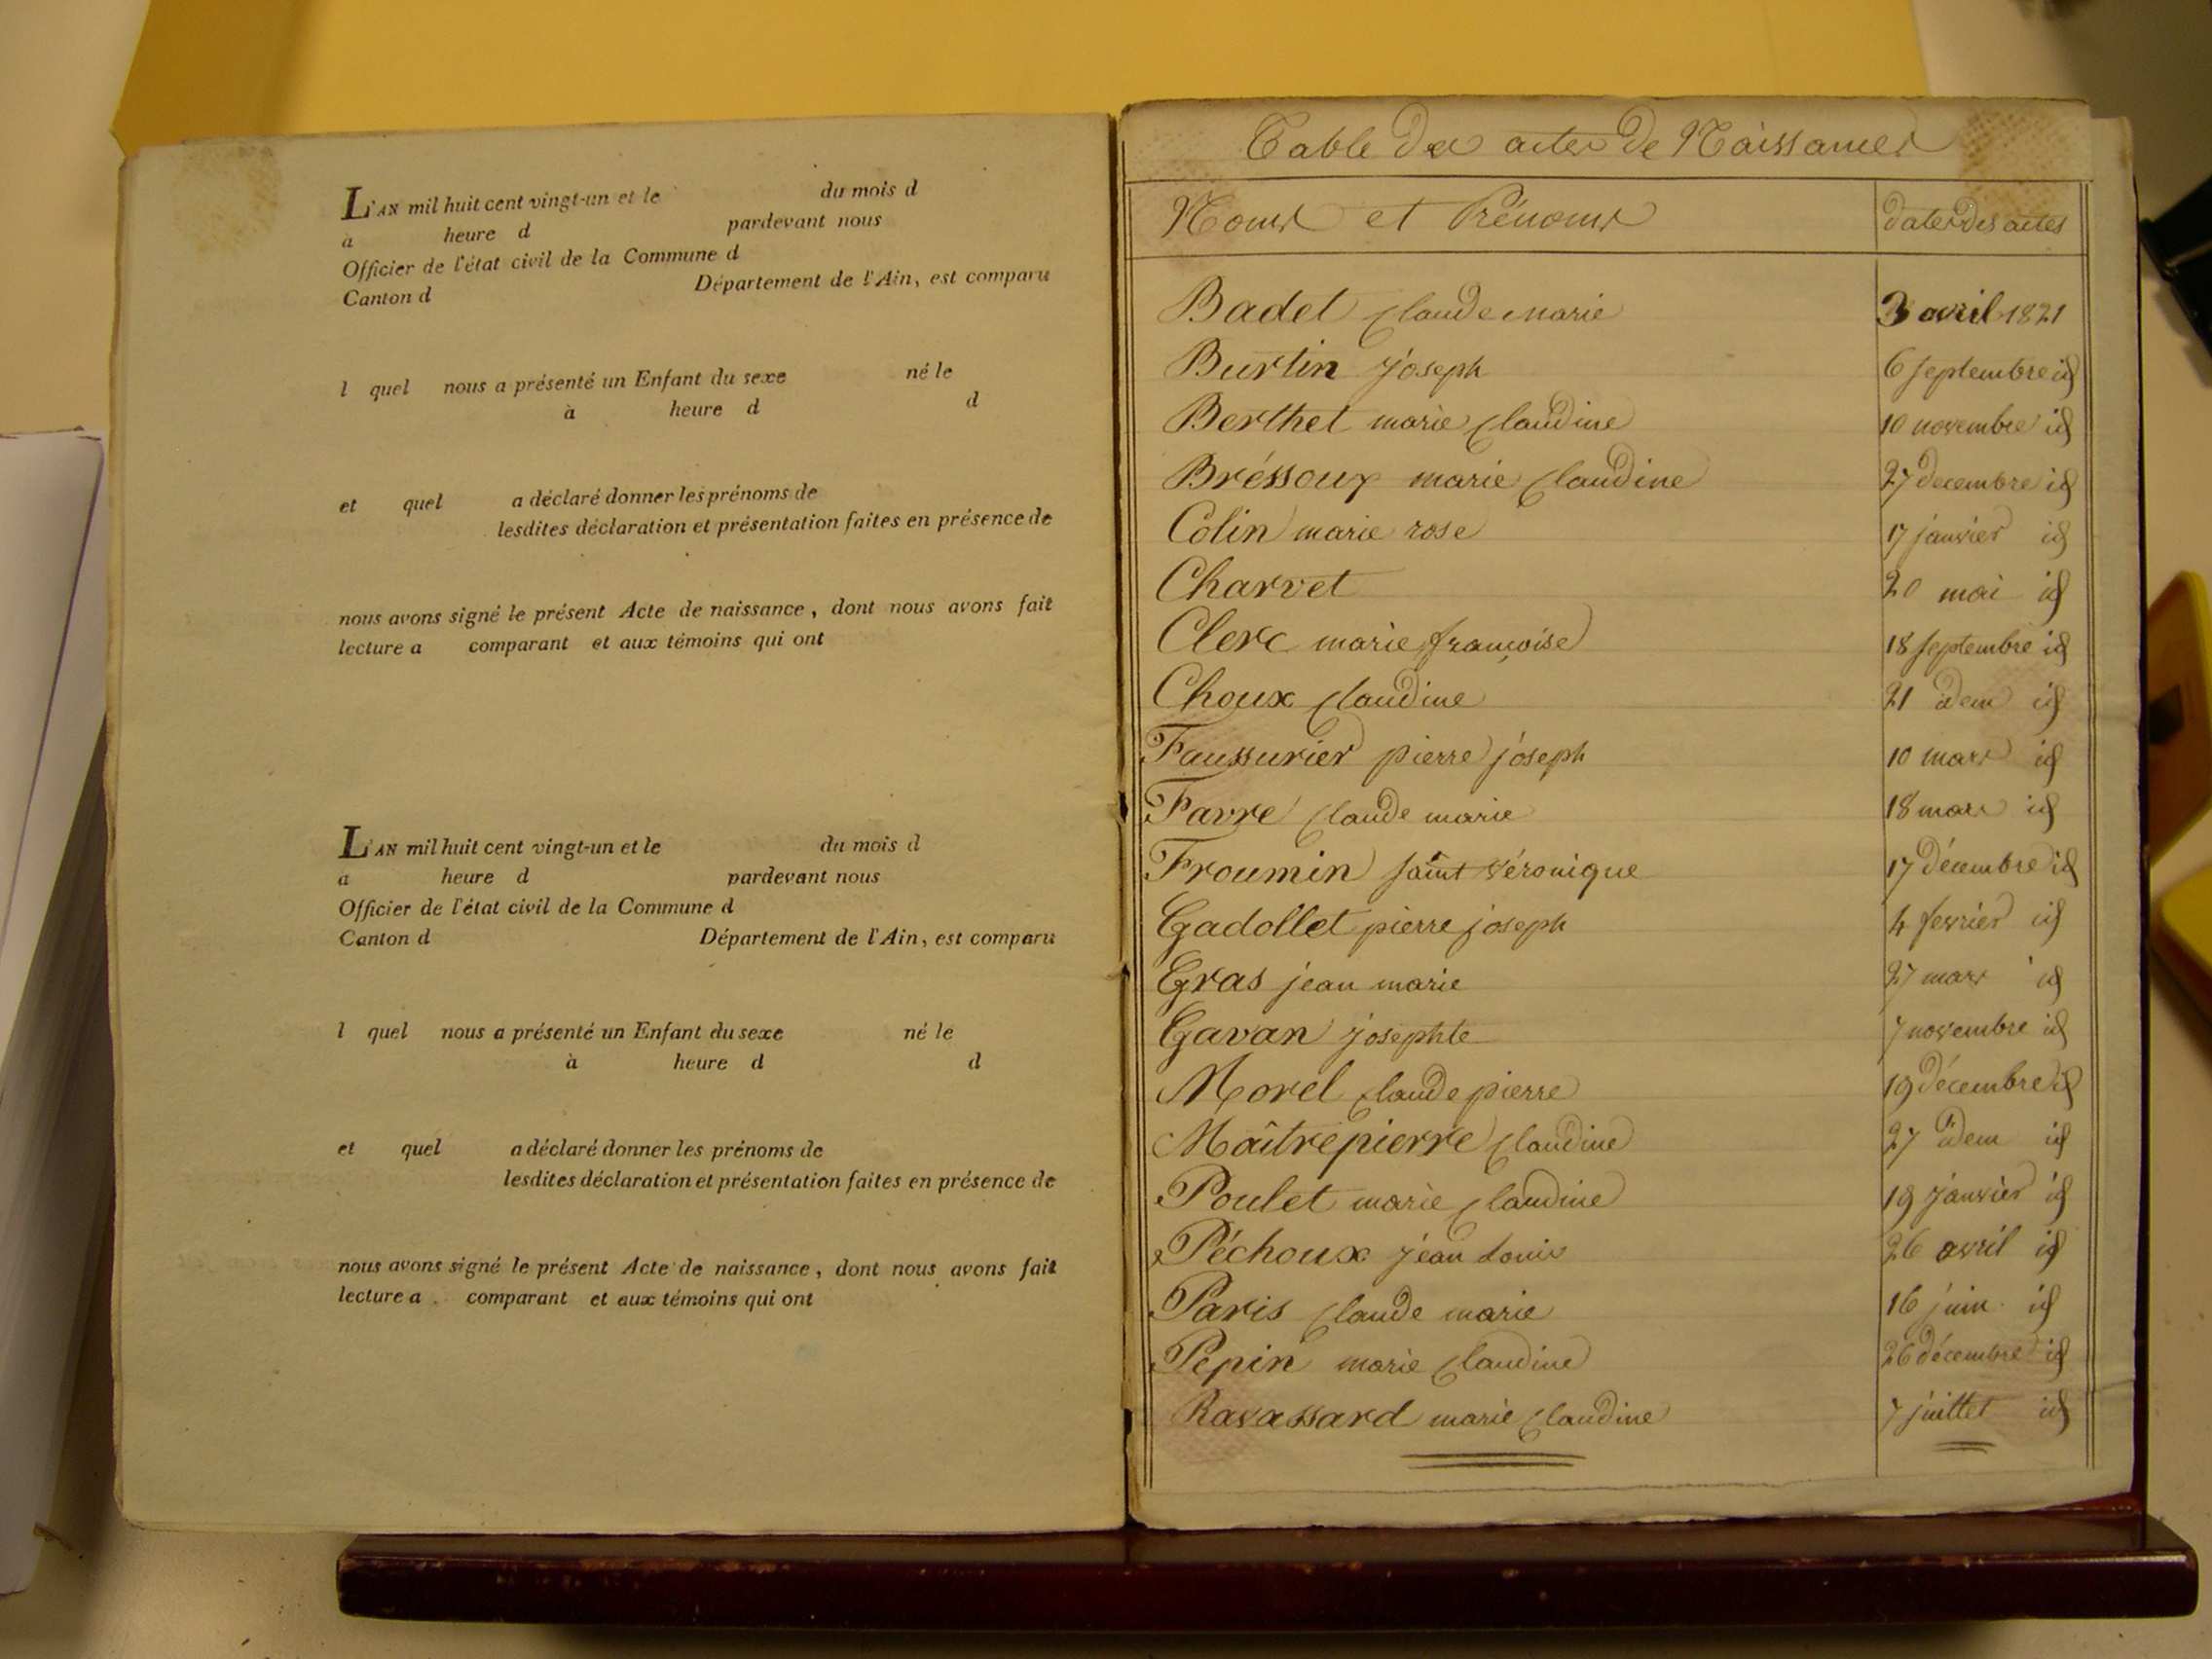 L'AN mil huit cent vingt-un et le du mois d
a heure d pardevant nous
Officier de l'état civil de la Commune d
Canton d Département de l'Ain, est comparu
l quel nous a présenté un Enfant du sexe né le
à heure d d
et quel a déclaré donner les prénoms de
lesdites déclaration et présentation faites en présence de
nous avons signé le présent Acte de naissance, dont nous avons fait
lecture a comparant et aux témoins qui ont
L'AN mil huit cent vingt-un et le du mois d
a heure d pardevant nous
Officier de l'état civil de la Commune d
Canton d Département de l'Ain, est comparu
l quel nous a présenté un Enfant du sexe né le
à heure d d
et quel a déclaré donner les prénoms de
lesdites déclaration et présentation faites en présence de
nous avons signé le présent Acte de naissance, dont nous avons fait
lecture a comparant et aux témoins qui ont
Table des actes de Naissances
Noms et Prénoms dates des actes
Badet Claude marie 3 avril 1821
Burtin joseph 6 septembre id
Berthet marie Claudine 10 novembre id
Bréssoux marie Claudine 27 decembre id
Colin marie rose 17 janvier id
Charvet 20 mai id
Clerc marie françoise 18 septembre id
Choux Claudine 21 idem id
Faussurier pierre joseph 10 mars id
Favre Claude marie 18 mars id
Froumin saint véronique 17 décembre id
Gadollet pierre joseph 4 fevrier id
Gras jean marie 27 mars id
Gavan josephte 7 novembre id
Morel Claude pierre 19 décembre id
Maîtrepierre Claudine 27 idem id
Poulet marie Claudine 19 janvier id
Péchoux jean Louis 26 avril id
Paris Claude marie 16 juin id
Pepin marie Claudine 26 décembre id
Ravassard marie Claudine 7 juillet id